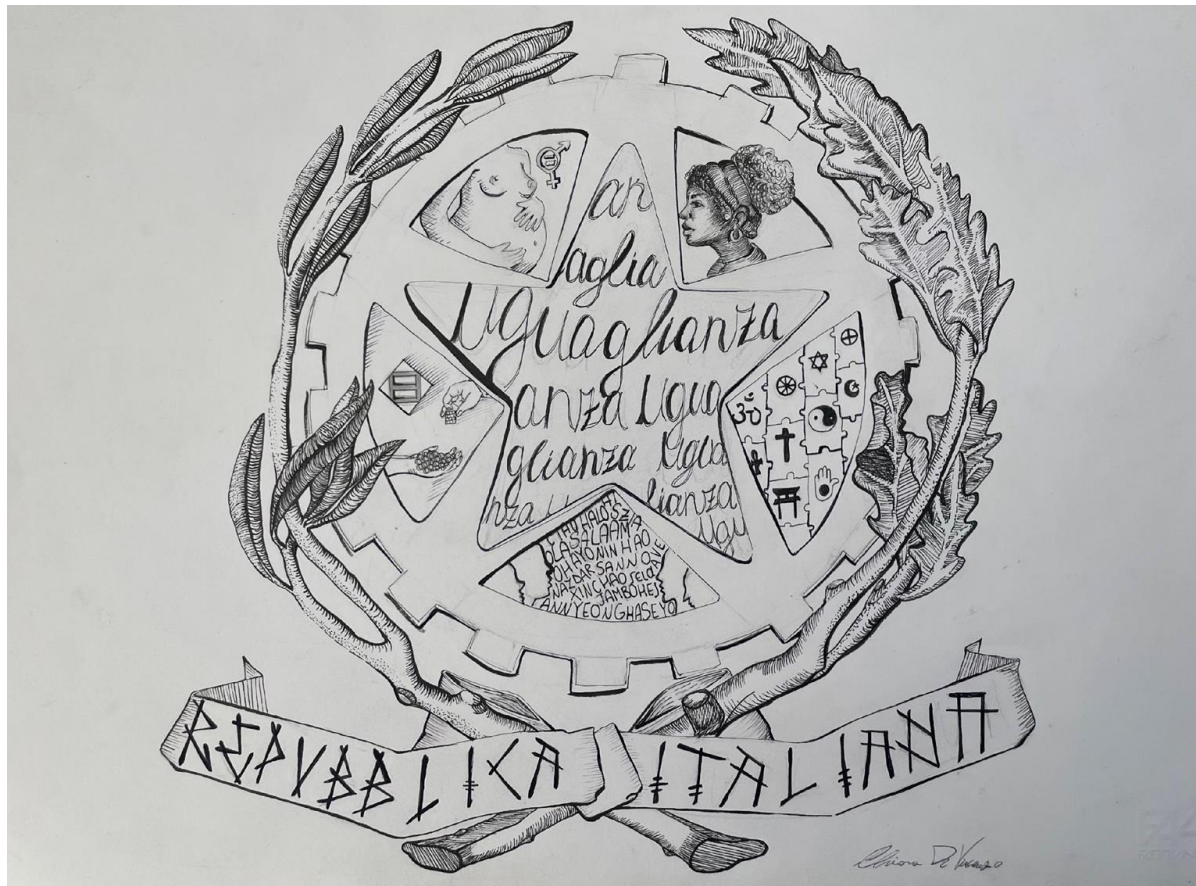 an
aglia
Uguaglianza
anza Ugua
glianza Uglia
nza U lianza
Ugu
CIAO HALO SZIA
OLA SALAAM
OHAYO NIN HAO
NAZDAR SANNO
XING HAO SELAM
JAMBO HEJ
ANNYEONGHASEYO
REPVBBLICA ITALIANA